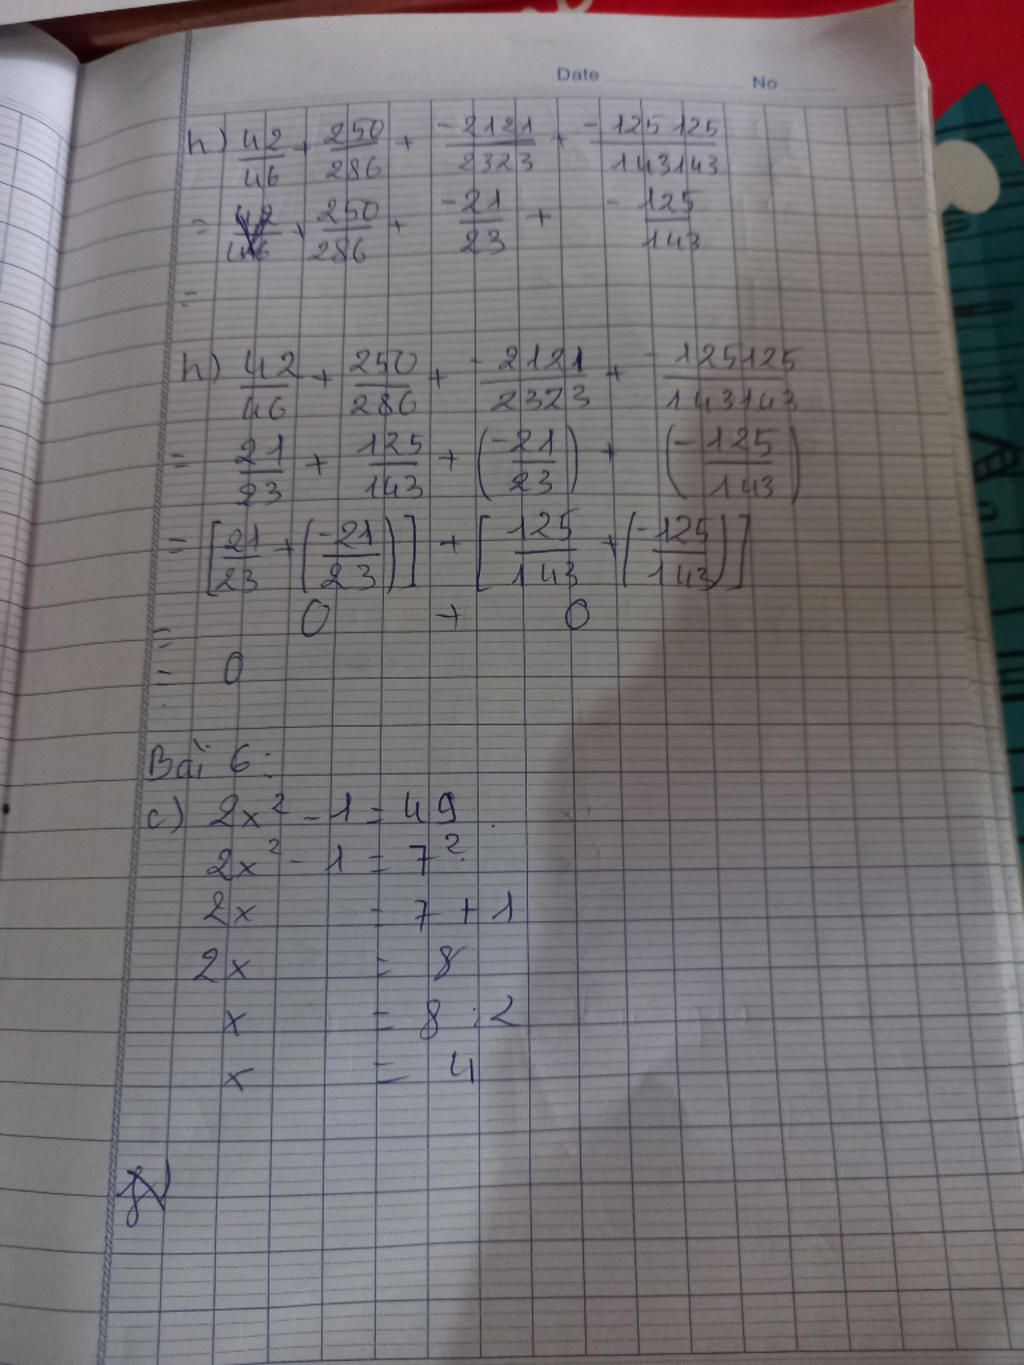 Date No
h) 42/46 + 250/286 + -2121/2323 + -125125/143143
= 42/46 + 250/286 + -21/23 + -125/143
=
h) 42/46 + 250/286 + -2121/2323 + -125125/143143
= 21/23 + 125/143 + (-21/23) + (-125/143)
= [21/23 + (-21/23)] + [125/143 + (-125/143)]
= 0 + 0
= 0
Bài 6:
c) 2x² - 1 = 49
2x² - 1 = 7²
2x = 7 + 1
2x = 8
x = 8 : 2
x = 4